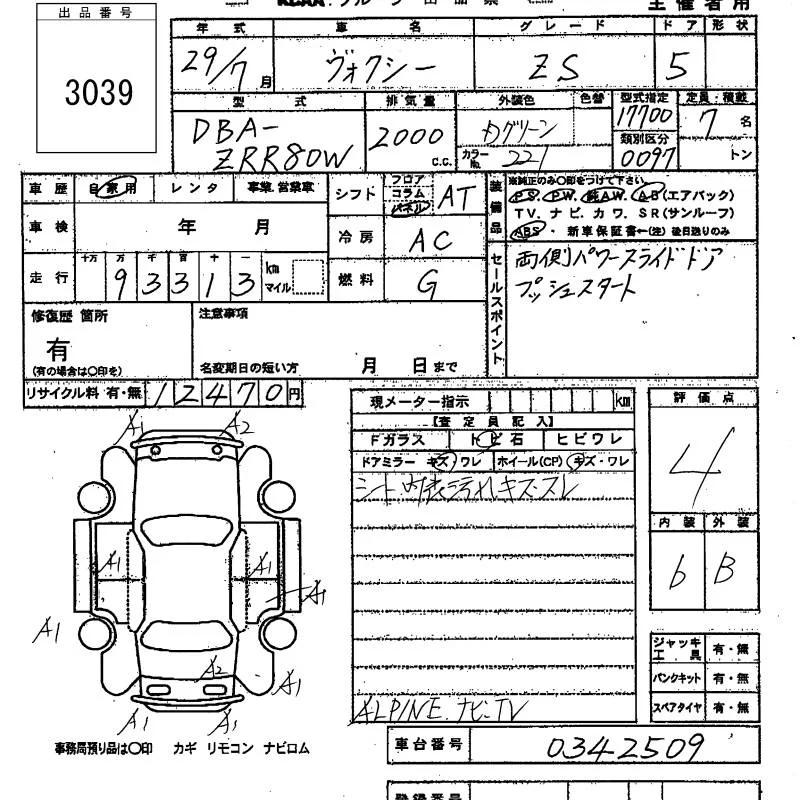 出品番号
3039
主催者用
年式 車名 グレード ドア 形状
29/7月 ヴォクシー ZS 5
型式 排気量 外装色 色替 型式指定 定員・積載
DBA-
ZRR80W
2000 c.c.
カラーNo. 221
17700
類別区分
0097
7名
トン
車歴 自家用 レンタ 事業.営業車
シフト フロア コラム パネル AT
装備品
※純正のみ〇印をつけて下さい。
PS. PW. 純AW. AB(エアバック)
TV. ナビ. カワ. SR(サンルーフ)
ABS・新車保証書←(注)後日送りのみ
車検 年 月
冷房 AC
走行 十万 万 千 百 十 一
93313 km マイル
燃料 G
セールスポイント
両側パワースライドドア
プッシュスタート
修復歴 箇所
有
(有の場合は〇印を)
注意事項
名変期日の短い方 月 日まで
リサイクル料 有・無 12470円
現メーター指示 km
【査定員記入】
Fガラス トビ石 ヒビワレ
ドアミラー キズ・ワレ ホイール(CP) キズ・ワレ
シート・内装汚れキズ・スレ
ALPINE ナビ・TV
評価点
4
内装 外装
b B
A1 A2
A1 A1
A1
A1
A2
A1
A1 A1
ジャッキ工具 有・無
パンクキット 有・無
スペアタイヤ 有・無
事務局預り品は〇印 カギ リモコン ナビロム
車台番号 0342509
登録番号